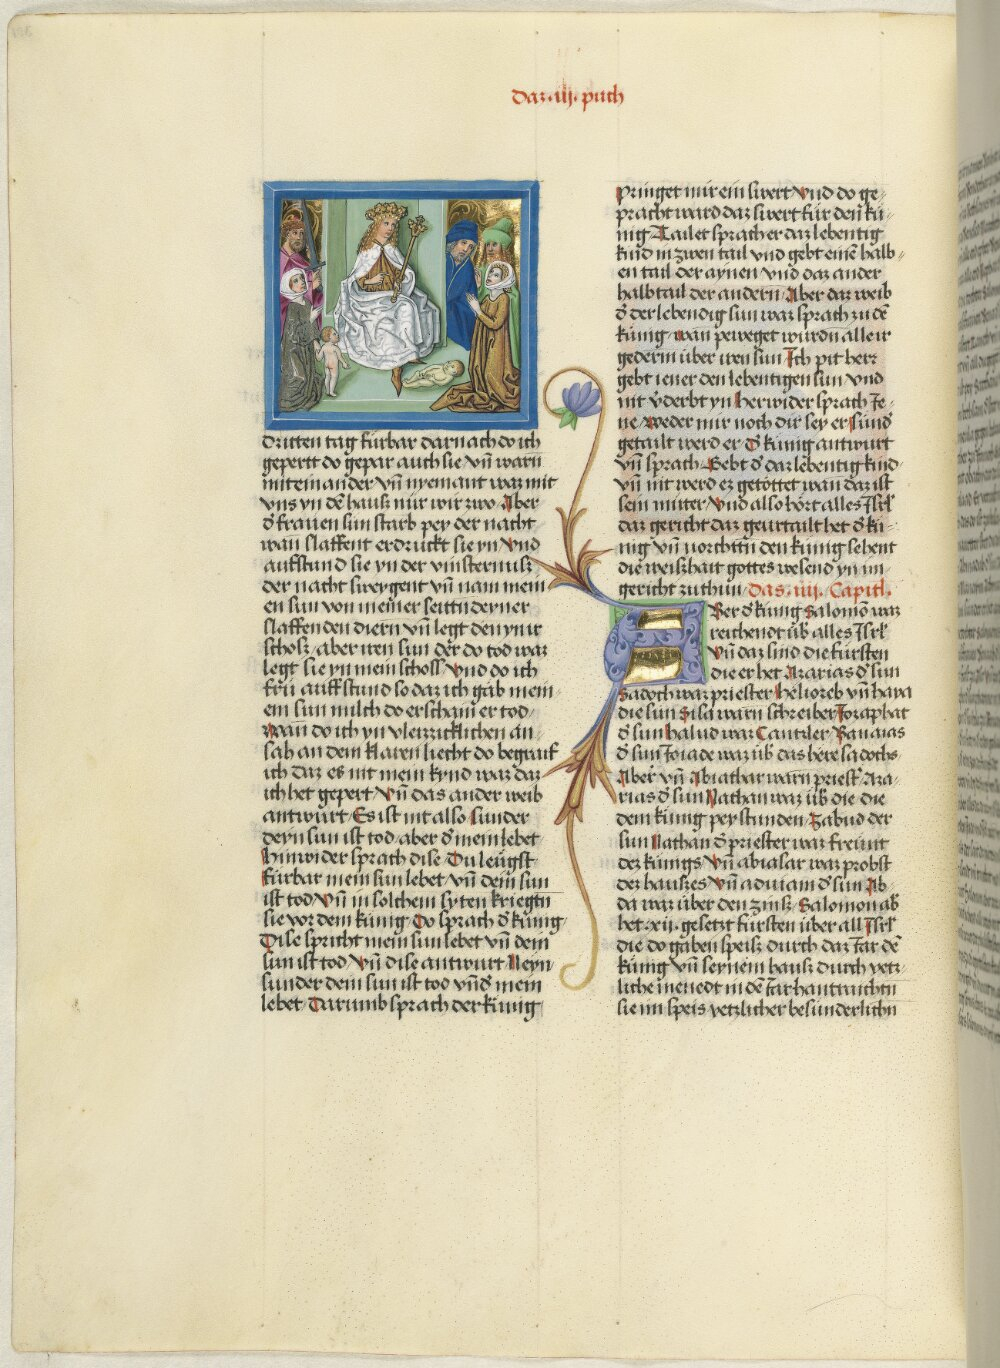 Daz .iij. puch
dritten tag fürbar darnach do ich
gepertt do gepar auch sie vn̄ warn
miteinander vn̄ nyemant waz mit
vns yn dē hausz nür wir zwo Aber
d̓ frauen sun starb pey der nacht
wan slaffent erdrückt sie yn Vnd
aufstund sie yn der vinsternusz
der nacht sweygent vn̄ nam mein
en sun von meiner seittn deyner
slaffenden diern vn̄ legt den yn ir
schosz aber iren sun der do tod waz
legt sie yn mein schosz Vnd do ich
frü auffstund so daz ich gab mein
em sun milch do erschain er tod
Wan do ich yn vleizziklichen an
sah an dem klaren liecht do begraif
ich daz es nit mein kynd waz daz
ich het gepert Vn̄ das ander weib
antwurt Es ist nit also Sunder
deyn sun ist tod aber d̓ mein lebet
Hinwider sprach dise Du leügst
fürbar mein sun lebet vn̄ dein sun
ist tod Vn̄ in solchem syten kriegtn
sie vor dem künig Do sprach d̓ künig
Dise spricht mein sun lebet vn̄ dein
sun ist tod Vn̄ dise antwurt Neyn
sunder dein sun ist tod vnd̓ mein
lebet Darumb sprach der künig
Pringet mir ein swert Vnd do ge
pracht ward daz swert für den kü
nig Tailet sprach er daz lebentig
kind in zwen tail vnd gebt einē halb
en tail der aynen vnd daz ander
halbtail der andern Aber daz weib
d̓ der lebendig sun waz sprach zu dē
künig wan peweget wurdn alle ir
gederm über iren sun Ich pit herr
gebt iener den lebentigen sun vnd
nit v̓derbt yn Herwider sprach Je
ne Weder mir noch dir sey er sund̓
getailt werd er D̓ künig antwurt
vn̄ sprach Gebt d̓ daz lebentig kind
vn̄ nit werd ez getöttet wan daz ist
sein mutter Vnd also hört alles Isrl̓
daz gericht daz geurtailt het d̓ kü
nig vn̄ vorchttn den künig sehent
die weiszhait gottes wesend yn im
gericht zu thun Das .iiij. Capitl.
Aber d̓ künig Salomon waz
reichendt üb̓ alles Isrl̓
Vn̄ daz sind die fürsten
die er het Azarias d̓ sun
Sadoch waz priester Helioreb vn̄ haya
die sun Sisa warn schreiber Josaphat
d̓ sun Haliud waz Cantzler Banaias
d̓ sun Joiade waz üb̓ das here sadochs
Aber vn̄ Abiathar warn priest̓ Aza
rias d̓ sun Nathan waz üb̓ die die
dem künig pey stunden Zabud der
sun Nathan d̓ priester waz freünt
dez künigs Vn̄ abiasar waz probst
dez hauszes Vn̄ aduiam d̓ sun Ab
da waz über den zinsz Salomon ab̓
het .xij. gesetzt fürsten über all Isrl̓
die do gaben speisz durch daz iar dē
künig vn̄ seynem hausz durch yetz
liche menedt in dē iar hantraichtn
sie im speis yetzlicher besünderlichn